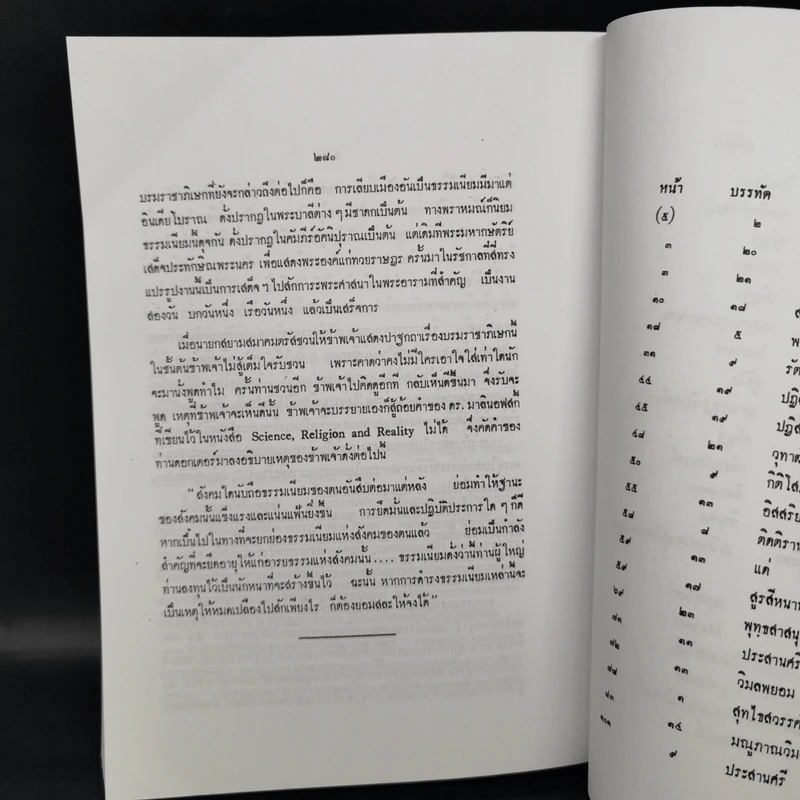 ๒๘๐
บรมราชาภิเษกที่ยังจะกล่าวถึงต่อไปก็คือ การเลียบเมืองอันเป็นธรรมเนียมมีมาแต่
อินเดียโบราณ ดั่งปรากฏในพระบาลีต่าง ๆ มีชาดกเป็นต้น ทางพราหมณ์ก็นิยม
ธรรมเนียมนี้ดุจกัน ดั่งปรากฏในคัมภีร์อัคนิปุราณเป็นต้น แต่เดิมทีพระมหากษัตริย์
เสด็จประทักษิณพระนคร เพื่อแสดงพระองค์แก่ทวยราษฎร ครั้นมาในรัชกาลที่สี่ทรง
แปรรูปงานนี้เป็นการเสด็จ ฯ ไปสักการะพระศาสนาในพระอารามที่สำคัญ เป็นงาน
สองวัน บกวันหนึ่ง เรือวันหนึ่ง แล้วเป็นเสร็จการ
เมื่อนายกสยามสมาคมตรัสชวนให้ข้าพเจ้าแสดงปาฐกถาเรื่องบรมราชาภิเษกนี้
ในชั้นต้นข้าพเจ้าไม่สู้เต็มใจรับชวน เพราะคาดว่าคงไม่มีใครเอาใจใส่เท่าใดนัก
จะมานั่งพูดทำไม ครั้นท่านชวนอีก ข้าพเจ้าไปคิดดูอีกที กลับเห็นดีขึ้นมา จึงรับจะ
พูด เหตุที่ข้าพเจ้าจะเห็นดีนั้น ข้าพเจ้าจะบรรยายเองก็สู้ถ้อยคำของ ดร. มาลินอฟสกี้
ที่เขียนไว้ในหนังสือ Science, Religion and Reality ไม่ได้ จึงคัดคำของ
ท่านดอกเตอร์มาลงอธิบายเหตุของข้าพเจ้าดั่งต่อไปนี้
"สังคมใดนับถือธรรมเนียมของตนอันสืบต่อมาแต่หลัง ย่อมทำให้ฐานะ
ของสังคมนั้นแข็งแรงและแน่นแฟ้นยิ่งขึ้น การยึดมั่นและปฏิบัติประการใด ๆ ก็ดี
หากเป็นไปในทางที่จะยกย่องธรรมเนียมแห่งสังคมของตนแล้ว ย่อมเป็นกำลัง
สำคัญที่จะยืดอายุให้แก่อารยธรรมแห่งสังคมนั้น.... ธรรมเนียมดั่งว่านี้ท่านผู้ใหญ่
ท่านลงทุนไว้เป็นนักหนาที่จะสร้างขึ้นไว้ ฉะนั้น หากการดำรงธรรมเนียมเหล่านี้จะ
เป็นเหตุให้หมดเปลืองไปสักเพียงไร ก็ต้องยอมสละให้จงได้"
หน้า บรรทัด
(๕) ๒
๓ ๒๐
๓ ๒๑
๑๐ ๑๘ ส
๑๘ ๕ พ
๓๑ ๙ รัต
๔๔ ๑๙ ปฏิ
๔๕ ๑๙ ปฏิส
๔๘ ๒๑ วุฑาต
๕๐ ๙ กิติโส
๕๕ ๑๓ อิสสริย
๕๘ ๘ ติคติราน
๕๙ ๑๓ แต่
๖๙ ๑๗ สูรสีหนาท
๗๑ ๒๓ พุทธสาสนุ
๗๒ ๑๑ ประสานศรี
๗๘ ๑๓ วิมลพยอม
๙๓ ๑ สุทไธสวรรค
๑๐๑ ๑๔ มณูภาณวิม
๙ ประสานศรี